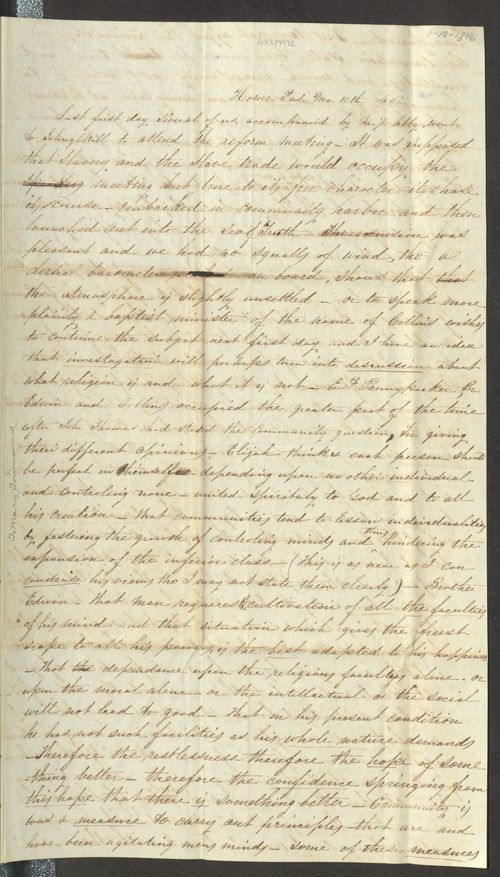 2-10-1846
Home 2nd Mo 10th 46
Last first day several of us, accompanied by Abby, went
to to attend the reform meeting – It was supposed
that Slavery and the Slave trade would occupy the
meeting but true to its free character it chose
its course – embarked in community harbor and then
launched out into the Sea of Truth – The excursion was
pleasant and we had no squalls of wind, tho a
clerical barometer on board, shows that that
the atmosphere is slightly unsettled – or to speak more
plainly a baptist minister of the name of Collins wishes
to continue the subject next first day and I have an idea
that investigation will perhaps turn into discussion about
what religion is and what it is not – E. F. Pennypacker Br.
Edwin and occupied the greater part of the time
after John Thomas had stated the Community question, in giving
their different opinions – Elijah thinks each person should
be perfect in themselves depending upon no other individual
and controling none – united spiritualy to God and to all
his creation – that communities tend to lessen individualities
by fostering the growth of controling minds and thus hindering the
expansion of the inferior class – (This is as near as I can
condense his views tho I may not state them clearly) – Brother
Edwin – that man requires the cultivation of all the faculties
of his mind and that situation which gives the freest
scope to all his powers, is the best adapted to his happiness
– that the dependance upon the religious faculties alone – or
upon the moral alone – or the intellectual or the social
will not lead to good – that in his present condition
he has not such facilities as his whole nature demands
– Therefore the restlessness therefore the hope of some
thing better – therefore the confidence springing from
this hope that there is something better – Community is
was a measure to carry out principles – that are and
have been agitating mens minds – Some of these measures